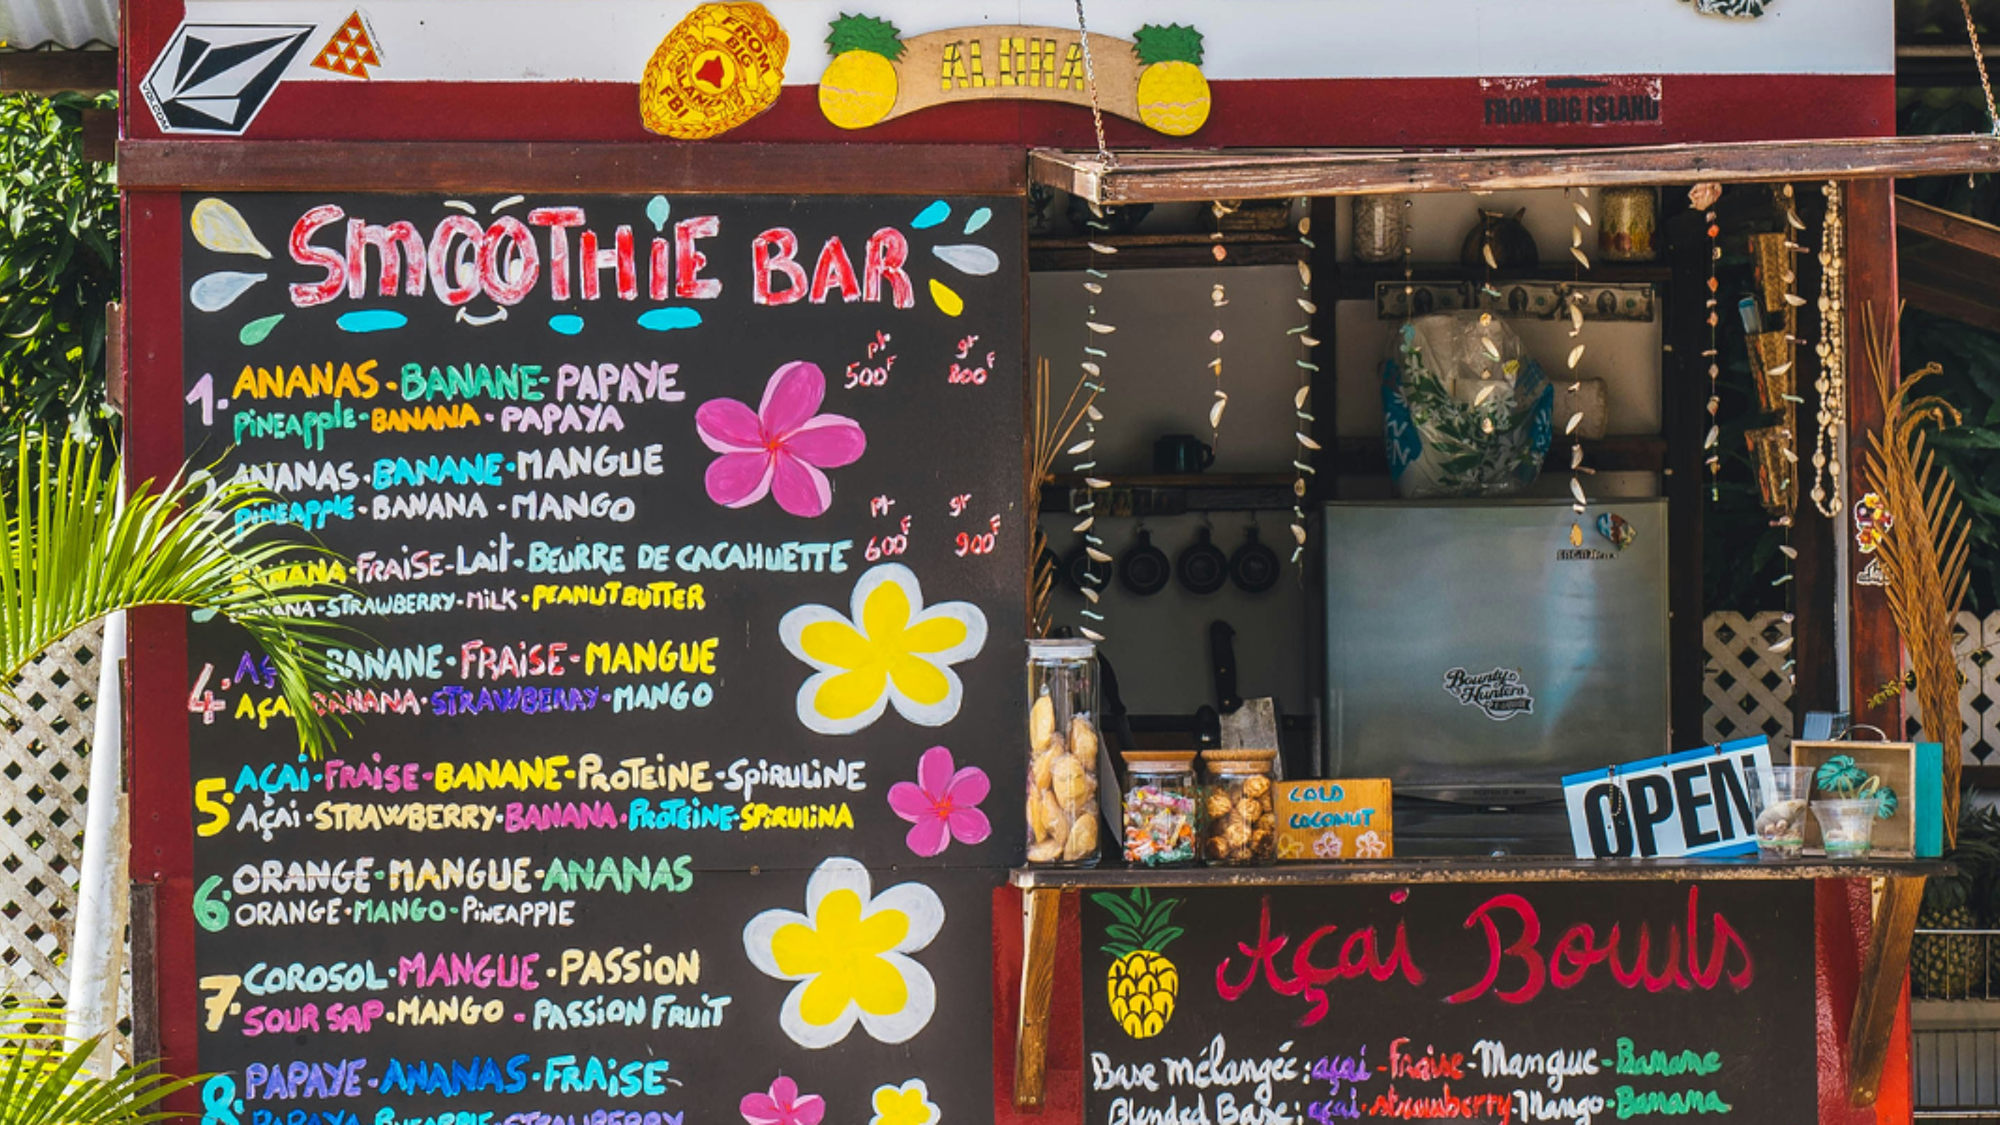 VOLCOM
FROM BIG
ISLAND
FBI
ALOHA
FROM BIG ISLAND
SMOOTHiE BAR
pt gr
500F 800F
1. ANANAS - BANANE - PAPAYE
PiNEApple - BANANA - PAPAYA
ANANAS - BANANE - MANGUE
PiNEAPPlE - BANANA - MANGO
pt gr
600F 900F
BANANA - FRAiSE - Lait - BEURRE DE CACAHUETTE
BANANA - STRAWBERRY - MiLK - PEANUT BUTTER
4. BANANE - FRAiSE - MANGUE
AÇAi BANANA - STRAWBERRY - MANGO
5. AÇAi - FRAiSE - BANANE - PROTEiNE - SPiRULiNE
AÇAi - STRAWBERRY - BANANA - PROTEiNE - SPiRULiNA
6. ORANGE - MANGUE - ANANAS
ORANGE - MANGO - PiNEAPPlE
7. COROSOL - MANGUE - PASSiON
SOUR SAP - MANGO - PASSiON FRUiT
8. PAPAYE - ANANAS - FRAiSE
PAPAYA PiNEAPPLE - STRAWBERRY
Bounty
Hunters
COLD
COCONUT
OPEN
Açai Bowls
Base mélangée : açai - Fraise - Mangue - Banane
Blended Base : açai - strawberry - Mango - Banana